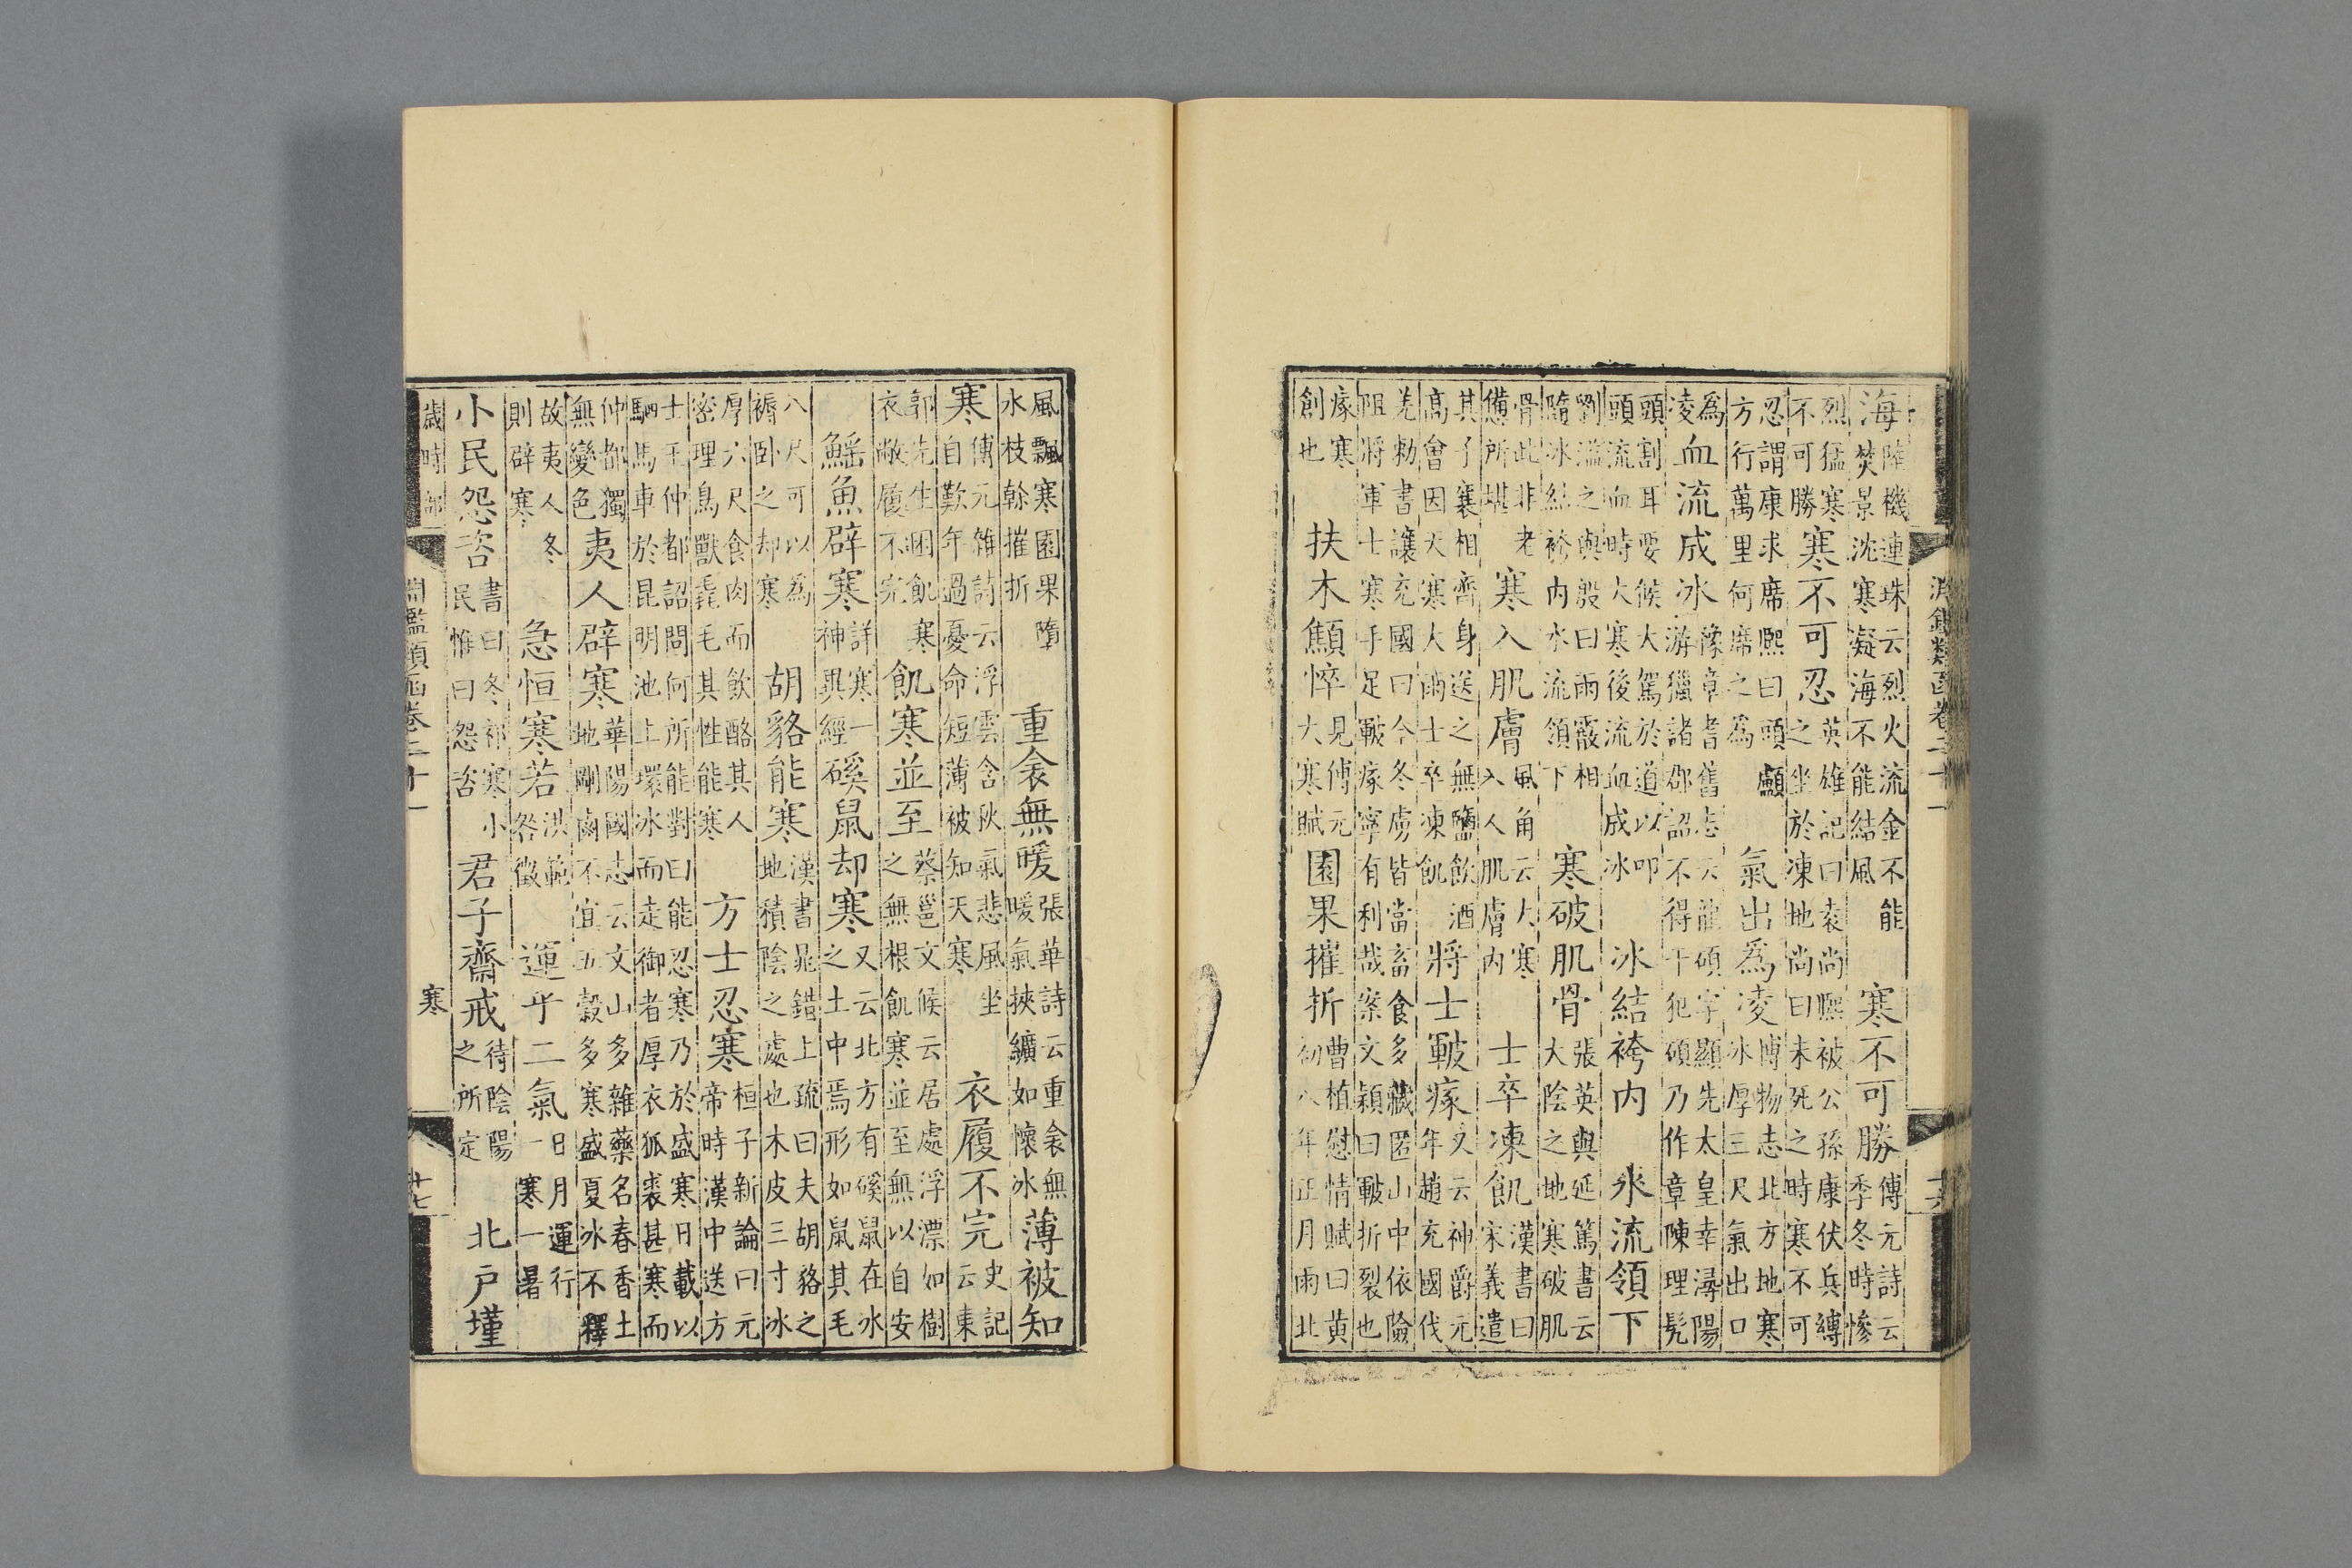 淵鑑類函卷二十一
十六
海陸機連珠云烈火流金不能焚景沈寒凝海不能結風 寒不可勝傅元詩云季冬時慘
烈猛寒不可勝 寒不可忍英雄記曰袁尚熙被公孫康伏兵縛之坐於凍地尚曰未死之時寒不可
忍謂康求席熙曰頭顱方行萬里何席之為 氣出為凌博物志北方地寒冰厚三尺氣出口
為凌 血流成冰豫章耆舊志云龍碩字顯先太皇幸潯陽游獵諸郡詔不得干犯碩乃作章陳理髡
頭割耳要候大駕於道以叩頭流血時大寒後流血成冰 冰結袴內 氷流領下
劉溫之與殷曰雨霰相隨冰結袴內氷流領下 寒破肌骨張英與延篤書云大陰之地寒破肌
骨此非老憊所堪 寒入肌膚風角云大寒入人肌膚內 士卒凍飢漢書曰宋義遣
其子襄相齊身送之無鹽飲酒高會因天寒大雨士卒凍飢 將士皸瘃又云神爵元年趙充國伐
羌勅書讓充國曰今冬虜皆當畜食多藏匿山中依險阻將軍士寒手足皸瘃寧有利哉案文穎曰皸折裂也
瘃寒創也 扶木顦悴見傅元大寒賦 園果摧折曹植慰情賦曰黃初八年正月雨北
風飄寒園果隋水枝幹摧折 重衾無暖張華詩云重衾無暖氣挾纊如懷冰 薄被知
寒傅元雜詩云浮雲含秋氣悲風坐自歎年過憂命短薄被知天寒 衣履不完史記云東
郭先生困飢寒衣敝履不完 飢寒並至蔡邕文候云居處浮漂如樹之無根飢寒並至無以自安
鰩魚辟寒詳寒一神異經 磎鼠却寒又云北方有磎鼠在冰之土中焉形如鼠其毛
八尺可以為褥卧之却寒 胡貉能寒漢書鼂錯上疏曰夫胡貉之地積陰之處也木皮三寸冰
厚六尺食肉而飲酪其人密理鳥獸毳毛其性能寒 方士忍寒桓子新論曰元帝時漢中送方
士王仲都詔問何所能對曰能忍寒乃於盛寒日載以駟馬車於昆明池上環冰而走御者厚衣狐裘甚寒而
仲都獨無變色 夷人辟寒華陽國志云文山多雜藥名春香土地剛鹵不宜五穀多寒盛夏冰不釋
故夷人冬則辟寒 急恒寒若洪範咎徵 運乎二氣日月運行一寒一暑
小民怨咨書曰冬祁寒小民惟曰怨咨 君子齋戒待陰陽之所定 北戶墐
歲時部
淵鑑類函卷二十一
寒
十七